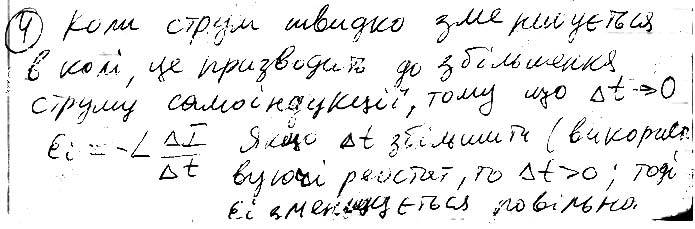 ④ Коли струм швидко зменшується
в колі, це призводить до збільшення
струму самоіндукції, тому що Δt→0
εi = -L ΔI/Δt Якщо Δt збільшити (викорис-
вуючи реостат, то Δt>0; тоді
εi зменшується повільно.